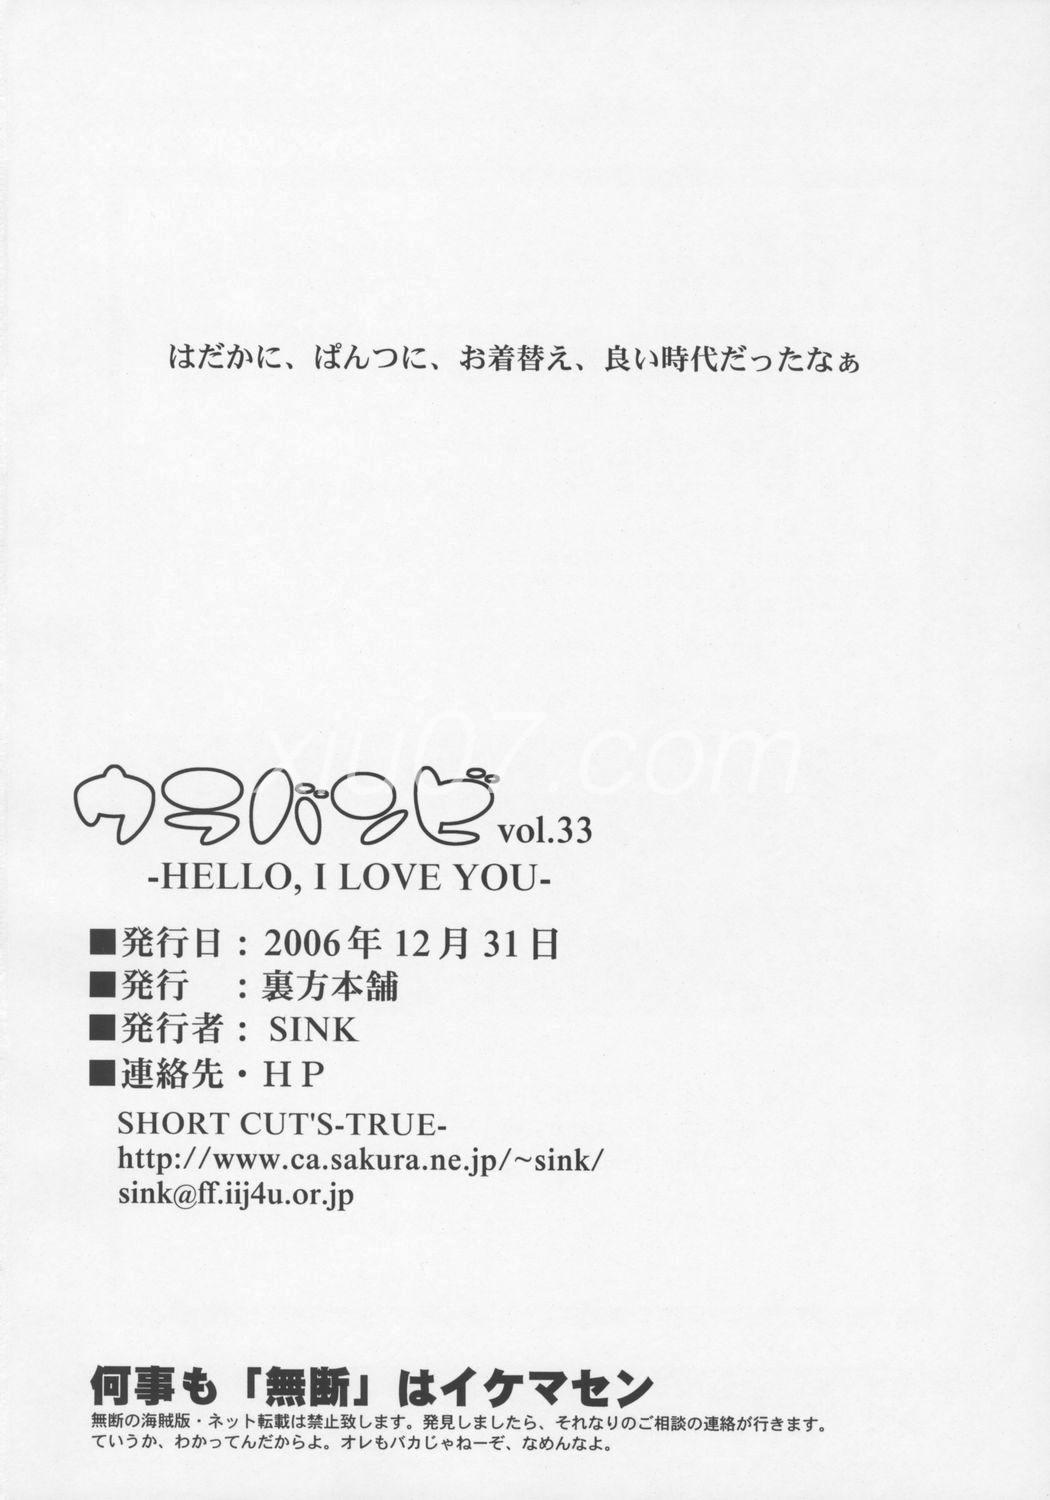 はだかに、ぱんつに、お着替え、良い時代だったなぁ
xiu07.com
ウラバンビ vol.33
-HELLO, I LOVE YOU-
■発行日：2006年12月31日
■発行　：裏方本舗
■発行者：SINK
■連絡先・HP
SHORT CUT'S-TRUE-
http://www.ca.sakura.ne.jp/~sink/
sink@ff.iij4u.or.jp
何事も「無断」はイケマセン
無断の海賊版・ネット転載は禁止致します。発見しましたら、それなりのご相談の連絡が行きます。
ていうか、わかってんだからよ。オレもバカじゃねーぞ、なめんなよ。